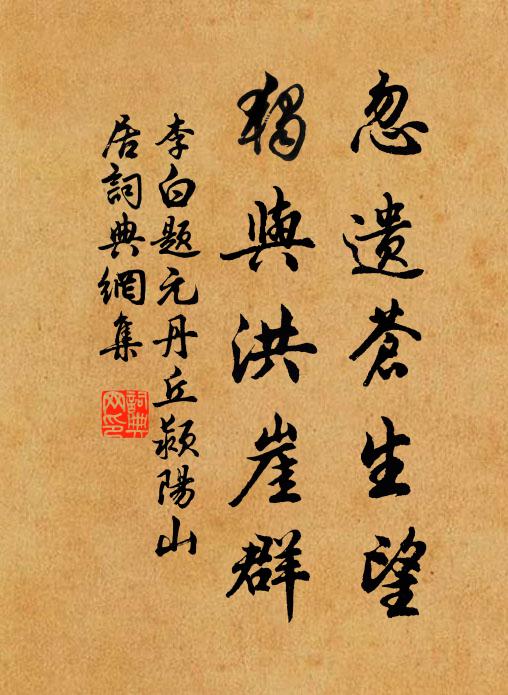 忽遗苍生望
独与洪崖群
李白题元丹丘颍阳山
居词典网集
词典网印